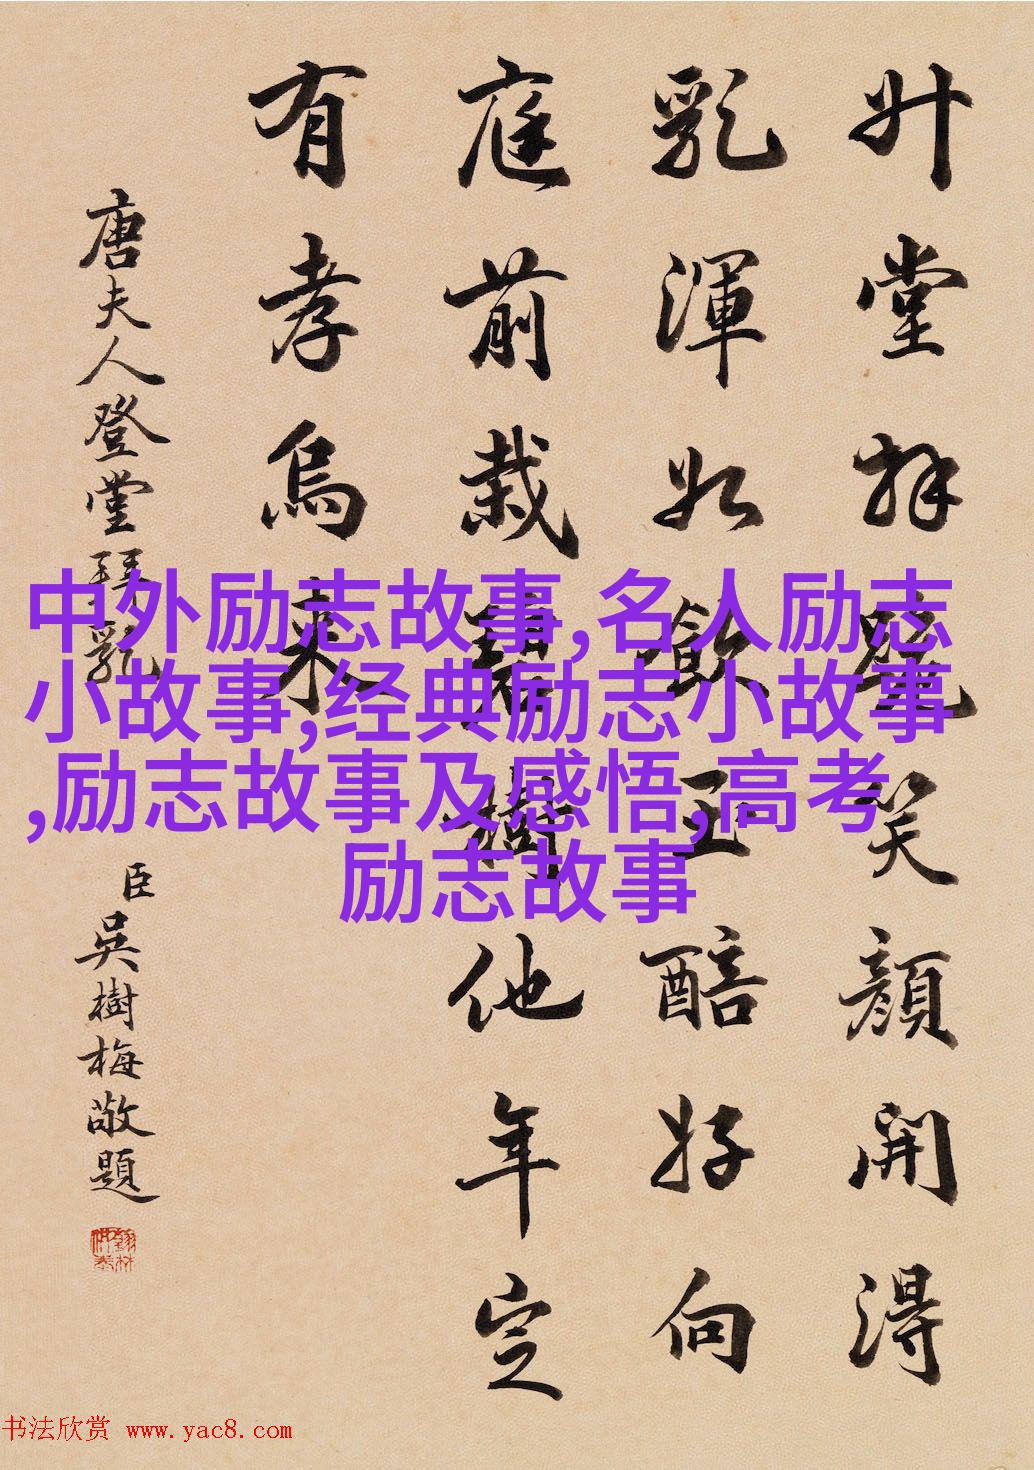 升堂拜罷笑顏開得
乳渾如飲玉醅好向
庭前栽碧樹他年定
有孝烏來
唐夫人登堂拜乳
臣吳樹梅敬題
中外励志故事,名人励志
小故事,经典励志小故事
,励志故事及感悟,高考
励志故事
书法欣赏 www.yac8.com